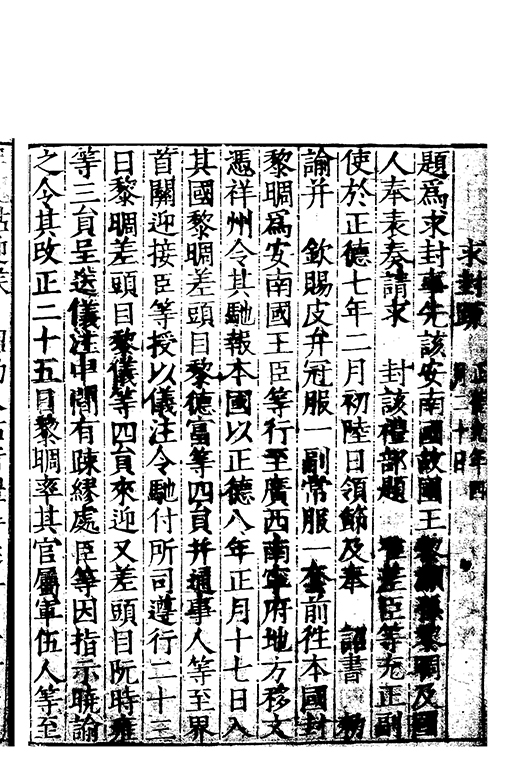 求封疏 正德九年四月二十日
題為求封事先該安南國故國王黎 黎晭及國
人奉表奏請求 封該禮部題 差臣等充正副
使於正德七年二月初陸日領節及奉 詔書 勑
諭并 欽賜皮弁冠服一副常服一套前往本國封
黎晭為安南國王臣等行至廣西南寧府地方移文
憑祥州令其馳報本國以正德八年正月十七日入
其國黎晭差頭目黎德富等四員并通事人等至界
首關迎接臣等授以儀注令馳付所司遵行二十三
日黎晭差頭目黎儀等四員來迎又差頭目阮時雍
等三員呈送儀注中間有疎繆處臣等因指示曉諭
之令其改正二十五日黎晭率其官屬軍伍人等至